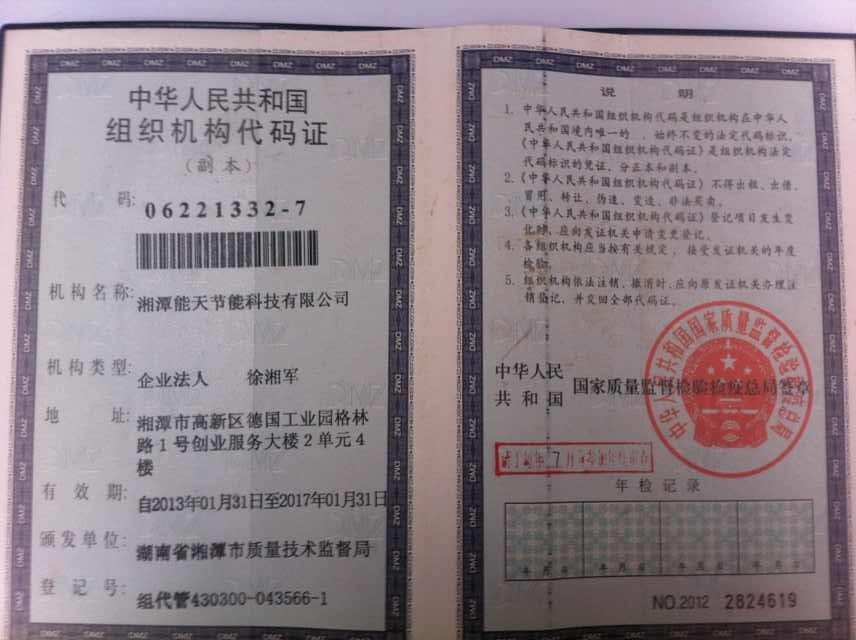 中华人民共和国
组织机构代码证
(副本)
代 码: 06221332-7
机构名称: 湘潭能天节能科技有限公司
机构类型: 企业法人 徐湘军
地 址: 湘潭市高新区德国工业园格林
路1号创业服务大楼2单元4
楼
有 效 期: 自2013年01月31日至2017年01月31日
颁发单位: 湖南省湘潭市质量技术监督局
登 记 号: 组代管430300-043566-1
说 明
1. 中华人民共和国组织机构代码是组织机构在中华人
民共和国境内唯一的、始终不变的法定代码标识,
《中华人民共和国组织机构代码证》是组织机构法定
代码标识的凭证,分正本和副本。
2.《中华人民共和国组织机构代码证》不得出租、出借、
冒用、转让、伪造、变造、非法买卖。
3.《中华人民共和国组织机构代码证》登记项目发生变
化时,应向发证机关申请变更登记。
4. 各组织机构应当按有关规定,接受发证机关的年度
检验。
5. 组织机构依法注销、撤消时,应向原发证机关办理注
销登记,并交回全部代码证。
中华人民
共和国 国家质量监督检验检疫总局签章
中华人民共和国国家质量监督检验检疫总局
年检记录
年 月 日 年 月 日 年 月 日 年 月 日
NO.2012 2824619